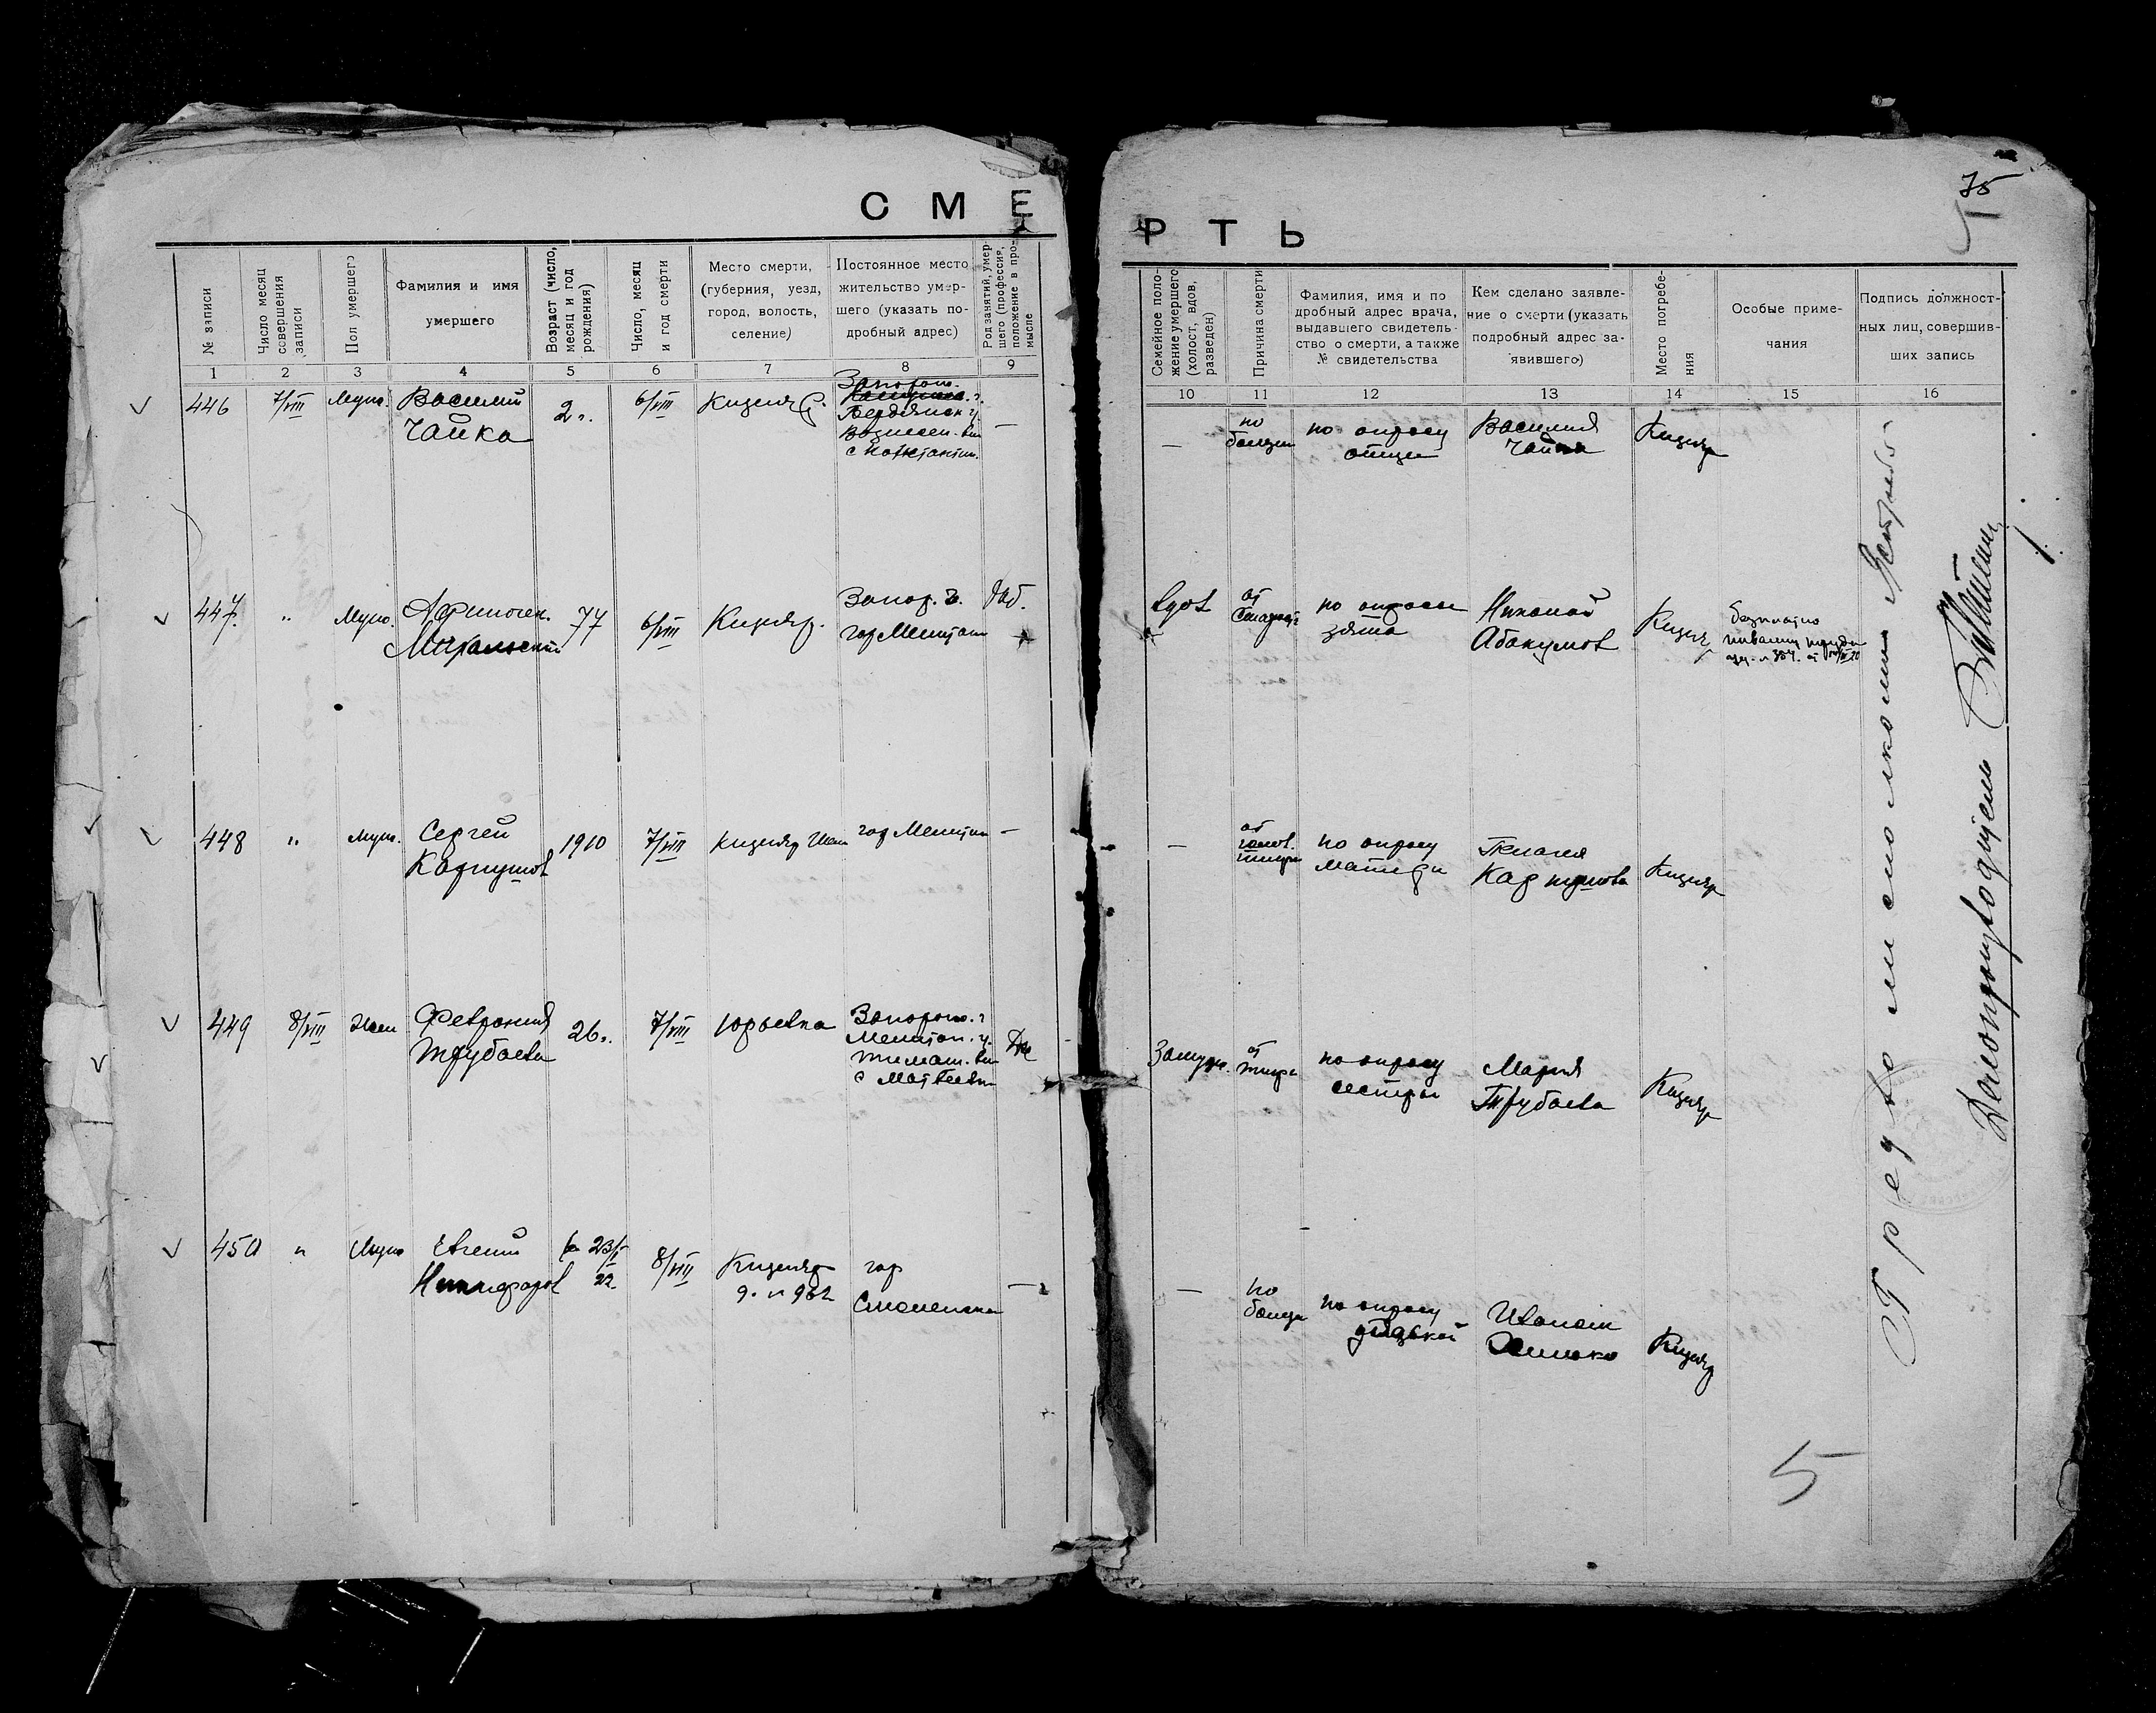 СМЕ
РТЬ
75
5
№ записи
Число месяц
совершения
записи
Пол умершего
Фамилия и имя
умершего
Возраст (число,
месяц и год
рождения)
Число, месяц
и год смерти
Место смерти,
(губерния, уезд,
город, волость,
селение)
Постоянное место
жительство умер-
шего (указать по-
дробный адрес)
Род занятий, умер-
шего (профессия,
положение в про-
мысле
1 2 3 4 5 6 7 8 9
Семейное поло-
жение умершего
(холост, вдов,
разведен)
Причина смерти
Фамилия, имя и по
дробный адрес врача,
выдавшего свидетель-
ство о смерти, а также
№ свидетельства
Кем сделано заявле-
ние о смерти (указать
подробный адрес за-
явившего)
Место погребе-
ния
Особые приме-
чания
Подпись должност-
ных лиц, совершив-
ших запись
10 11 12 13 14 15 16
446 7/VIII Муж. Василий
Чайка
2 г. 6/VIII Кизияр.
Запорож.
Бердянск у.
Вознесен. вол
с Константин.
—
—
по
болезни
по опросу
отца
Василия
Чайка
Кизияр
447. " Муж.
77 6/VIII Кизияр.
Запор. г.
гор Мелитоп
Раб.
вдов
от
старост
по опросу
зятя
Николай
Абакумов
Кизияр
Бесплатно
448 " муж. Сергей
Карпушов
1910 7/VIII Кизияр
гор Мелитоп —
—
от
голов.
тифа
по опросу
матери
Карпушова
Кизияр
449 8/VIII Жен Феврония
Трубаева
26 г. 7/VIII Юрьевка
Запорож. г
Мелитоп. у.
Тимаш. вол
с Матвеевк
Дх
Замуж.
от
тифа
по опросу
сестры
Мария
Трубаева
Кизияр
450 " Муж Евгений
Никифоров
23/I
22.
8/VIII Кизияр
д. № 962
гор
Смоленска
—
—
по
болезн
по опросу
Иваном
Кизияр
Предволисполкома
Делопроизводитель
5